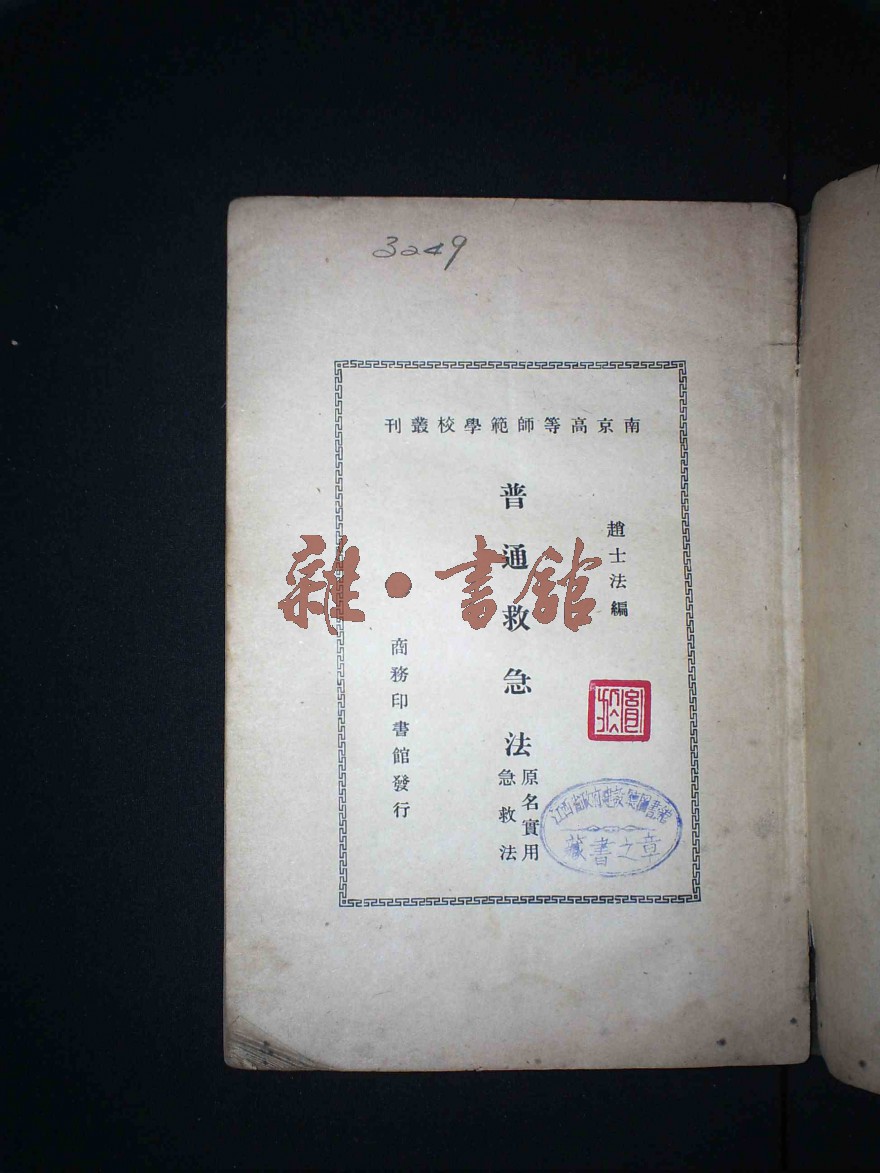 3249
南京高等師範學校叢刊
趙士法編
普通救急法
原名實用
急救法
商務印書館發行
雜·書館
藏書之章